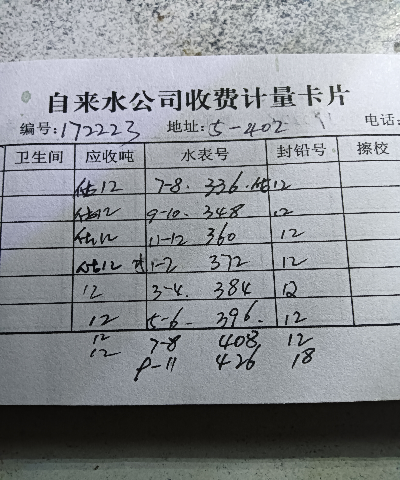 自来水公司收费计量卡片
编号:172223 地址:5-402 电话:
卫生间 应收吨 水表号 封铅号 擦校
估12 7-8. 336. 估12
估12 9-10. 348 12
估12 11-12 360 12
估12 1-2 372 12
12 3-4. 384 12
12 5-6. 396. 12
12 7-8 408. 12
12 9-11 426 18